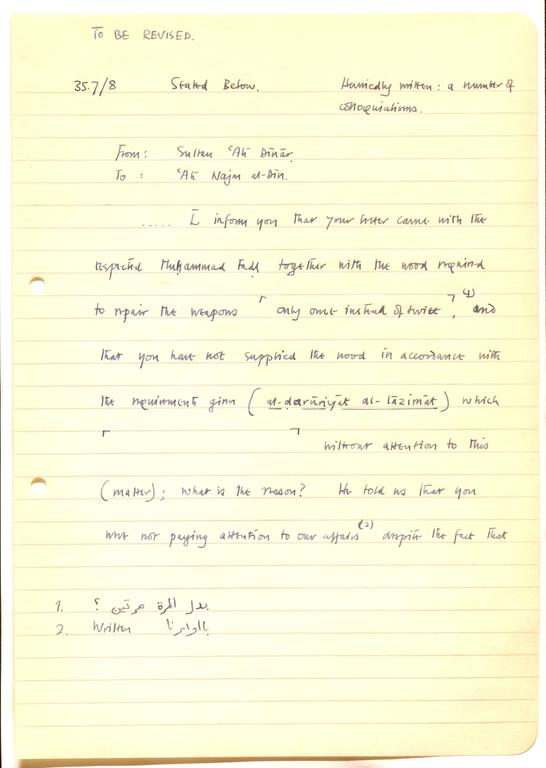 TO BE REVISED.
35.7/8 Stated Below. Hurriedly written: a number of
colloquialisms.
From: Sultan ʿAlī Dīnār.
To : ʿAlī Najm al-Dīn.
..... I inform you that your letter came with the
respected Muḥammad Faḍl together with the wood required
to repair the weapons ⌜ only once instead of twice ⌝,(1) and
that you have not supplied the wood in accordance with
the requirements given (al-ḍarūrīyāt al-lāzimāt) which
⌜ ⌝ without attention to this
(matter); what is the reason? He told us that you
were not paying attention to our affairs(2) despite the fact that
1. بدل المرة مرتين ؟
2. Written